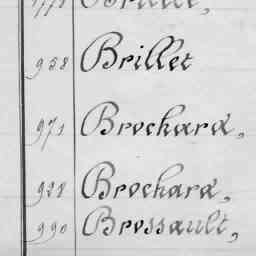 958 Brillet
971 Brochard,
928 Brochard,
990 Brossault,